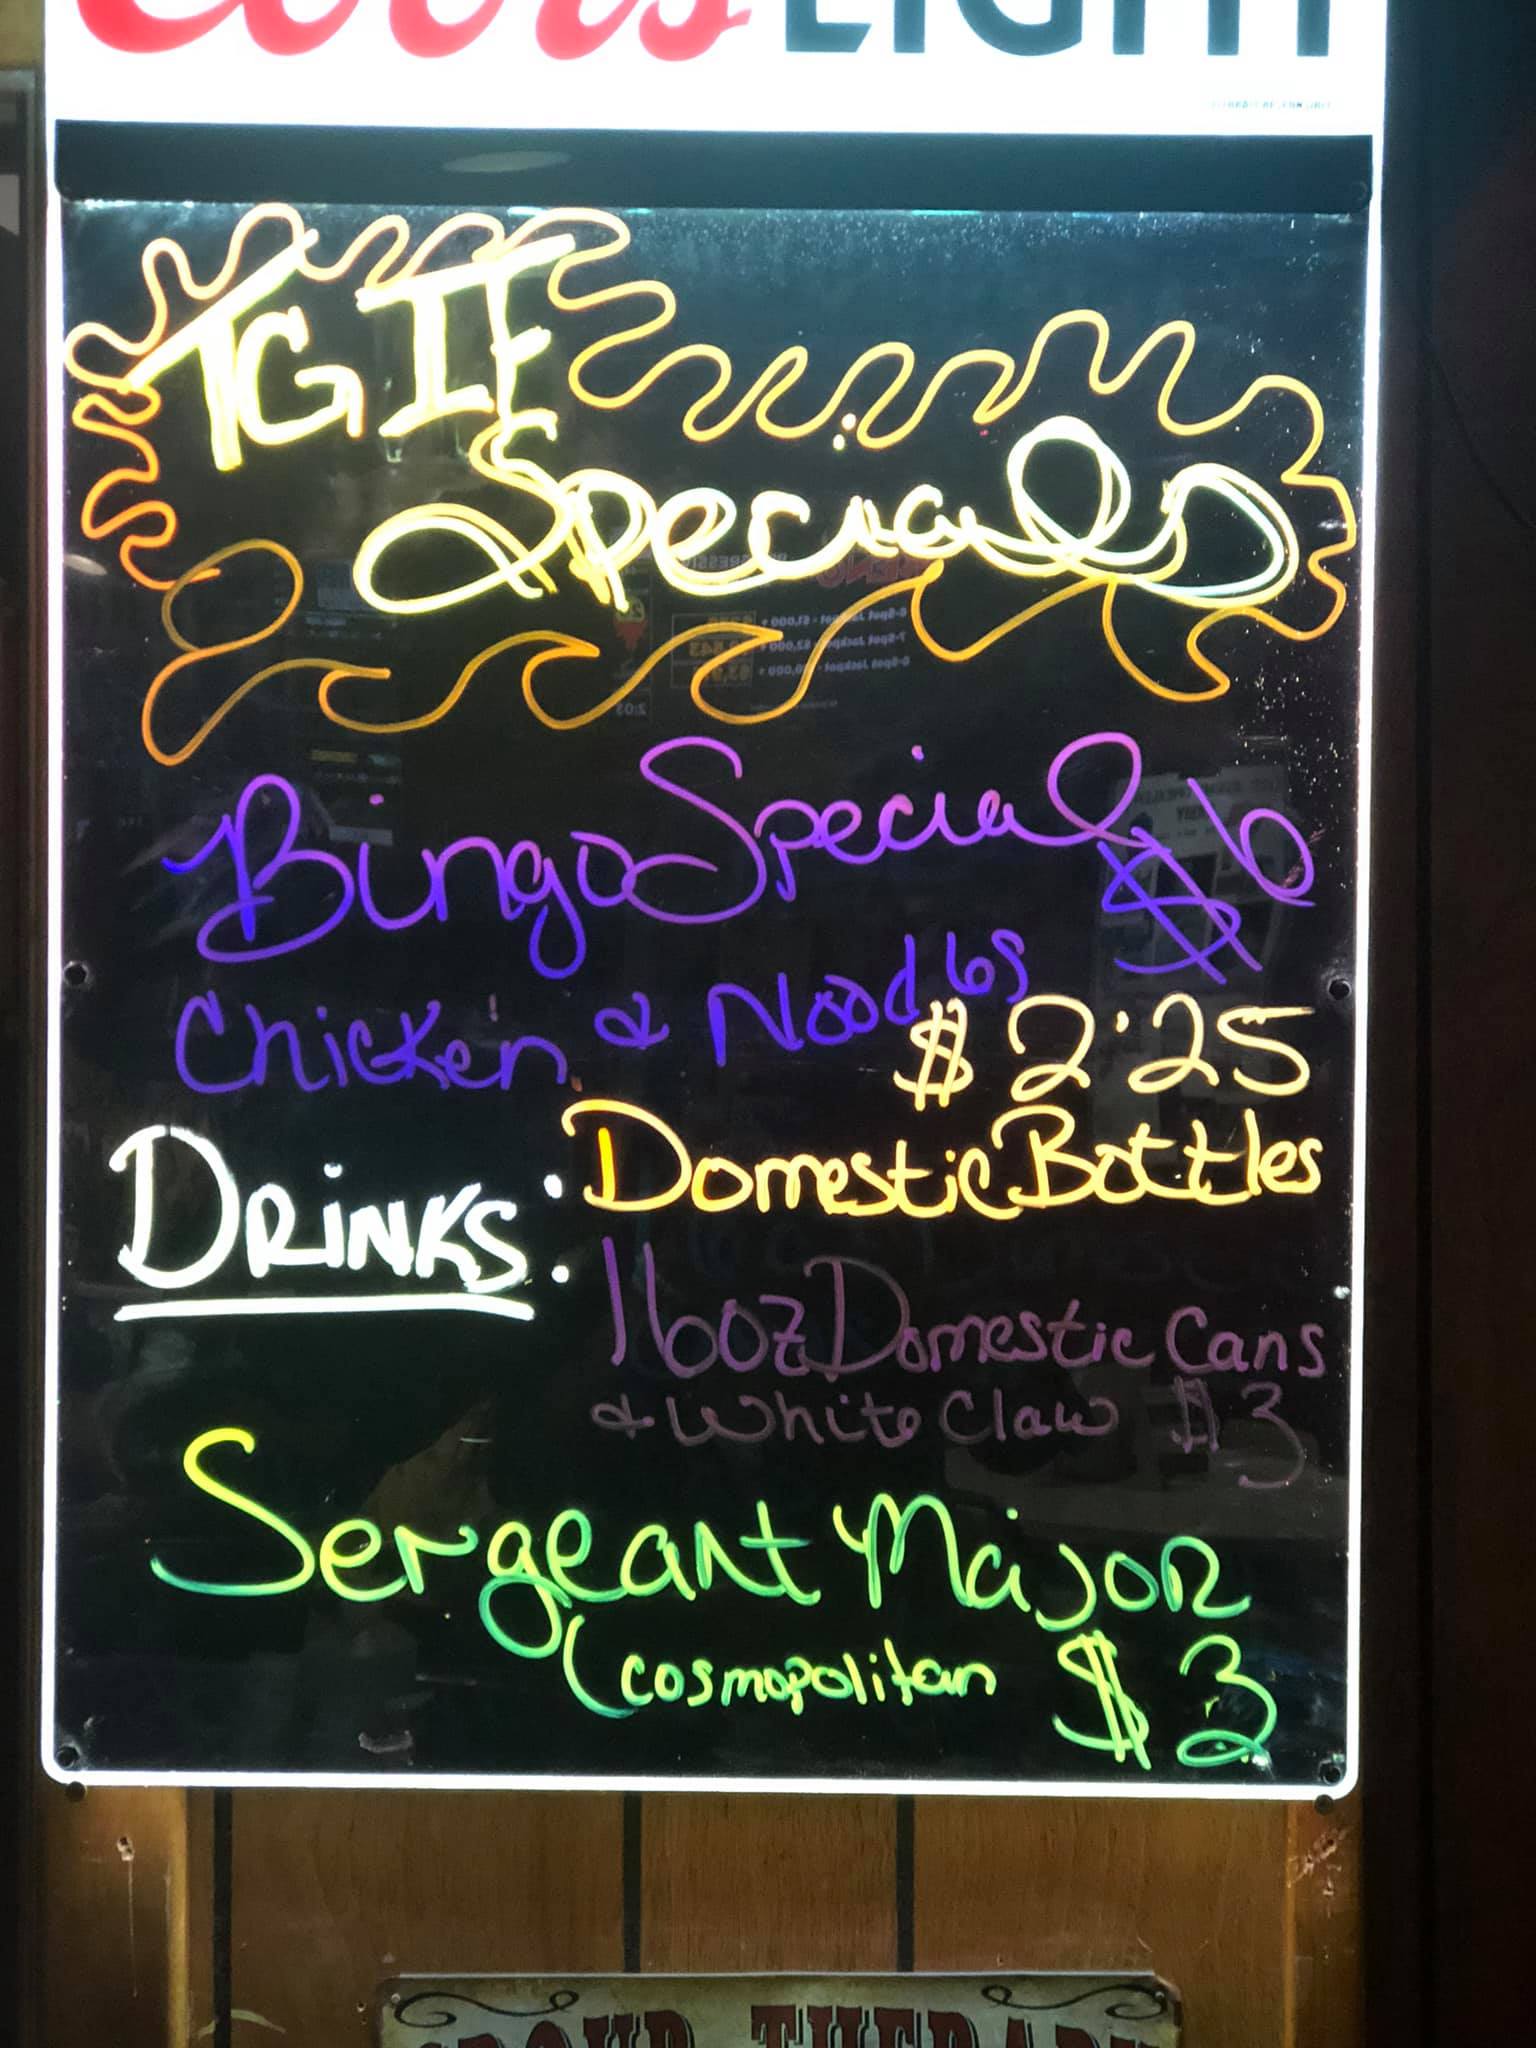 Coors LIGHT
TGIF
Specials
Bingo Special $6
Chicken & Noodles
$2.25
Drinks: Domestic Bottles
16oz Domestic Cans
& White Claw $3
Sergeant Major
(cosmopolitan $3
GROUP THERAPY